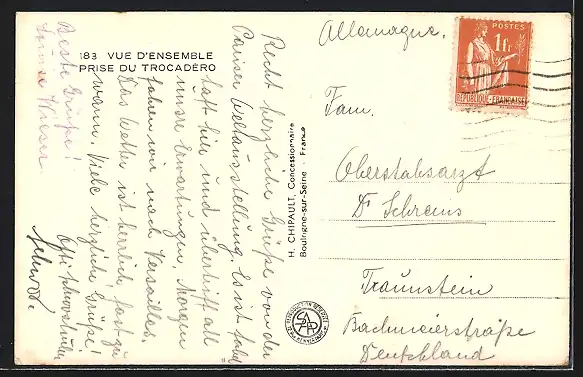 183 VUE D'ENSEMBLE
PRISE DU TROCADÉRO
Recht herzliche Grüße von der
Pariser Weltausstellung. Es ist fabel
haft hier und übertrifft all
unsre Erwartungen. Morgen
fahren wir nach Versailles.
Das Wetter ist herrlich, fast zu
warm. Viele herzliche Grüße!
Beste Grüße!
H. CHIPAULT, Concessionnaire
Boulogne-sur-Seine - France
Allemagne.
POSTES
1fr
REPUBLIQUE-FRANÇAISE
Fam.
Oberstabsarzt
Dr Schrems
Traunstein
Bachmeierstraße
Deutschland